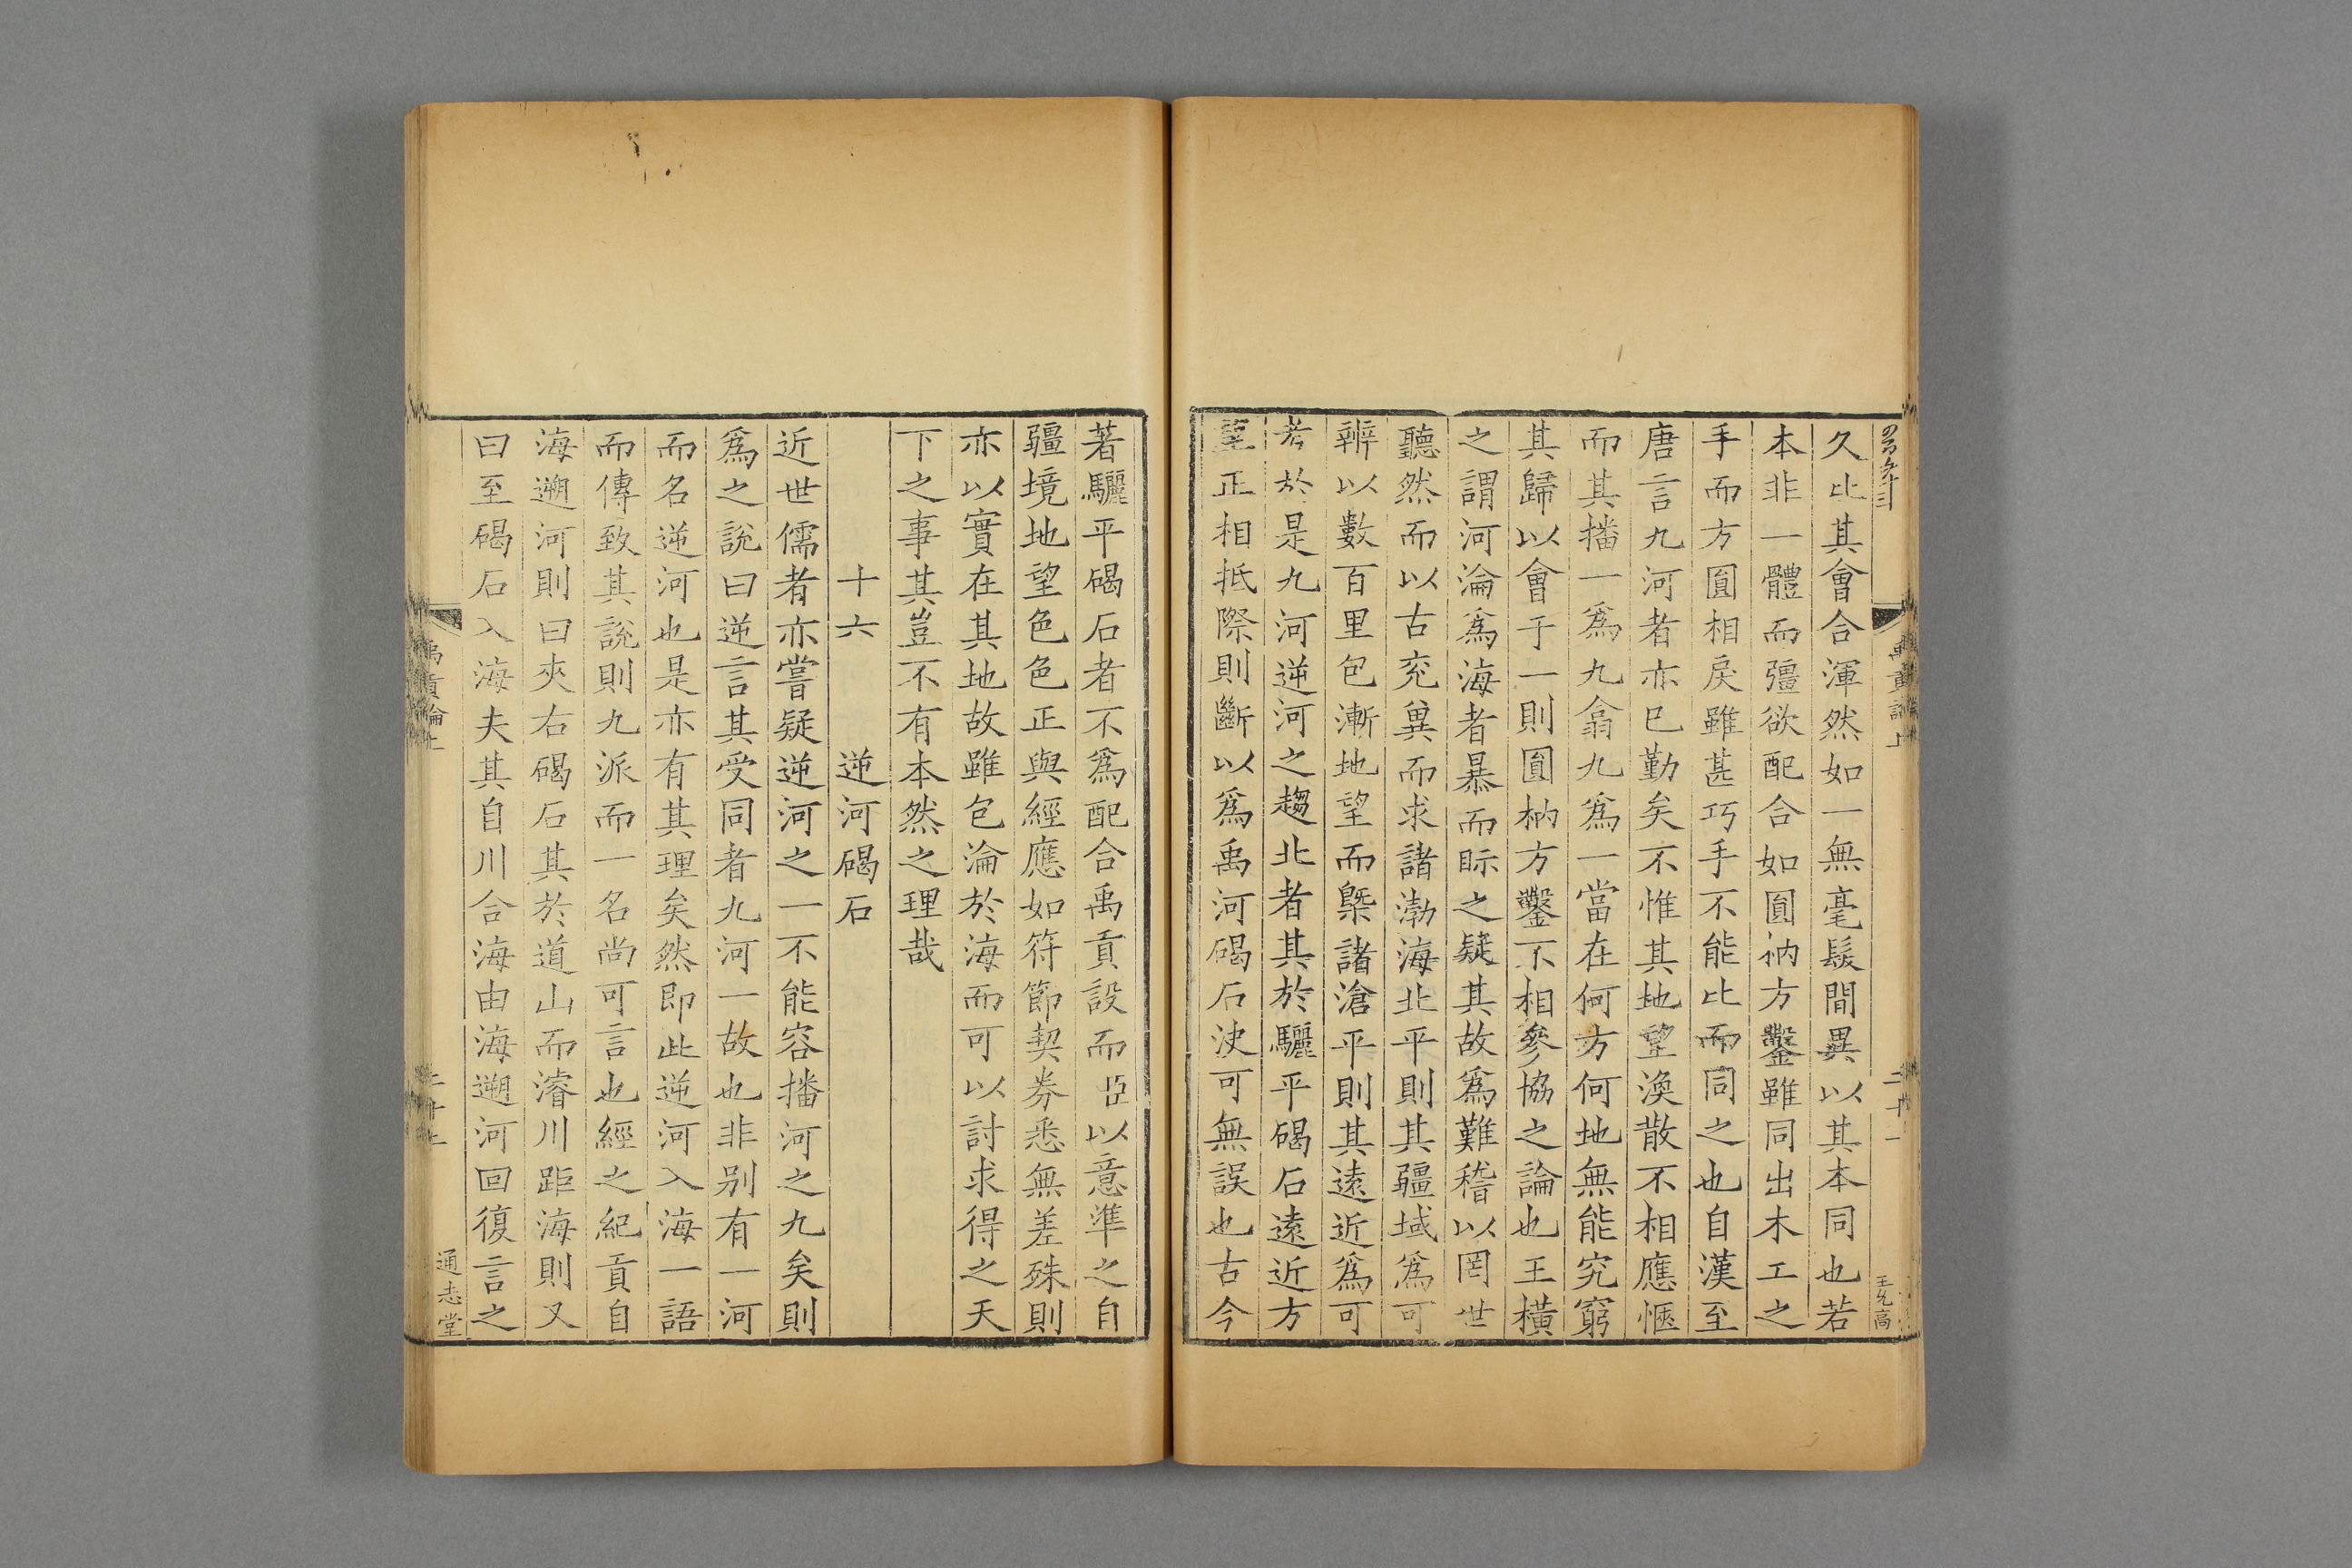 久比其會合渾然如一無毫髮間異以其本同也若
本非一體而彊欲配合如圓衲方鑿雖同出木工之
手而方圓相戾雖甚巧手不能比而同之也自漢至
唐言九河者亦已勤矣不惟其地望渙散不相應愜
而其播一爲九翕九爲一當在何方何地無能究窮
其歸以會于一則圓枘方鑿不相參協之論也王橫
之謂河淪爲海者暴而眎之疑其故爲難稽以罔世
聽然而以古兖兾而求諸渤海北平則其疆域爲可
辨以數百里包漸地望而槩諸滄平則其遠近爲可
考於是九河逆河之趨北者其於驪平碣石遠近方
望正相抵際則斷以爲禹河碣石決可無誤也古今
禹貢論上
二十一
王允高
著驪平碣石者不爲配合禹貢設而臣以意準之自
疆境地望色色正與經應如符節契券悉無差殊則
亦以實在其地故雖包淪於海而可以討求得之天
下之事其豈不有本然之理哉
十六 逆河碣石
近世儒者亦嘗疑逆河之一不能容播河之九矣則
爲之說曰逆言其受同者九河一故也非别有一河
而名逆河也是亦有其理矣然即此逆河入海一語
而傳致其說則九派而一名尚可言也經之紀貢自
海遡河則曰夾右碣石其於道山而濬川距海則又
曰至碣石入海夫其自川合海由海遡河回復言之
禹貢論上
通志堂